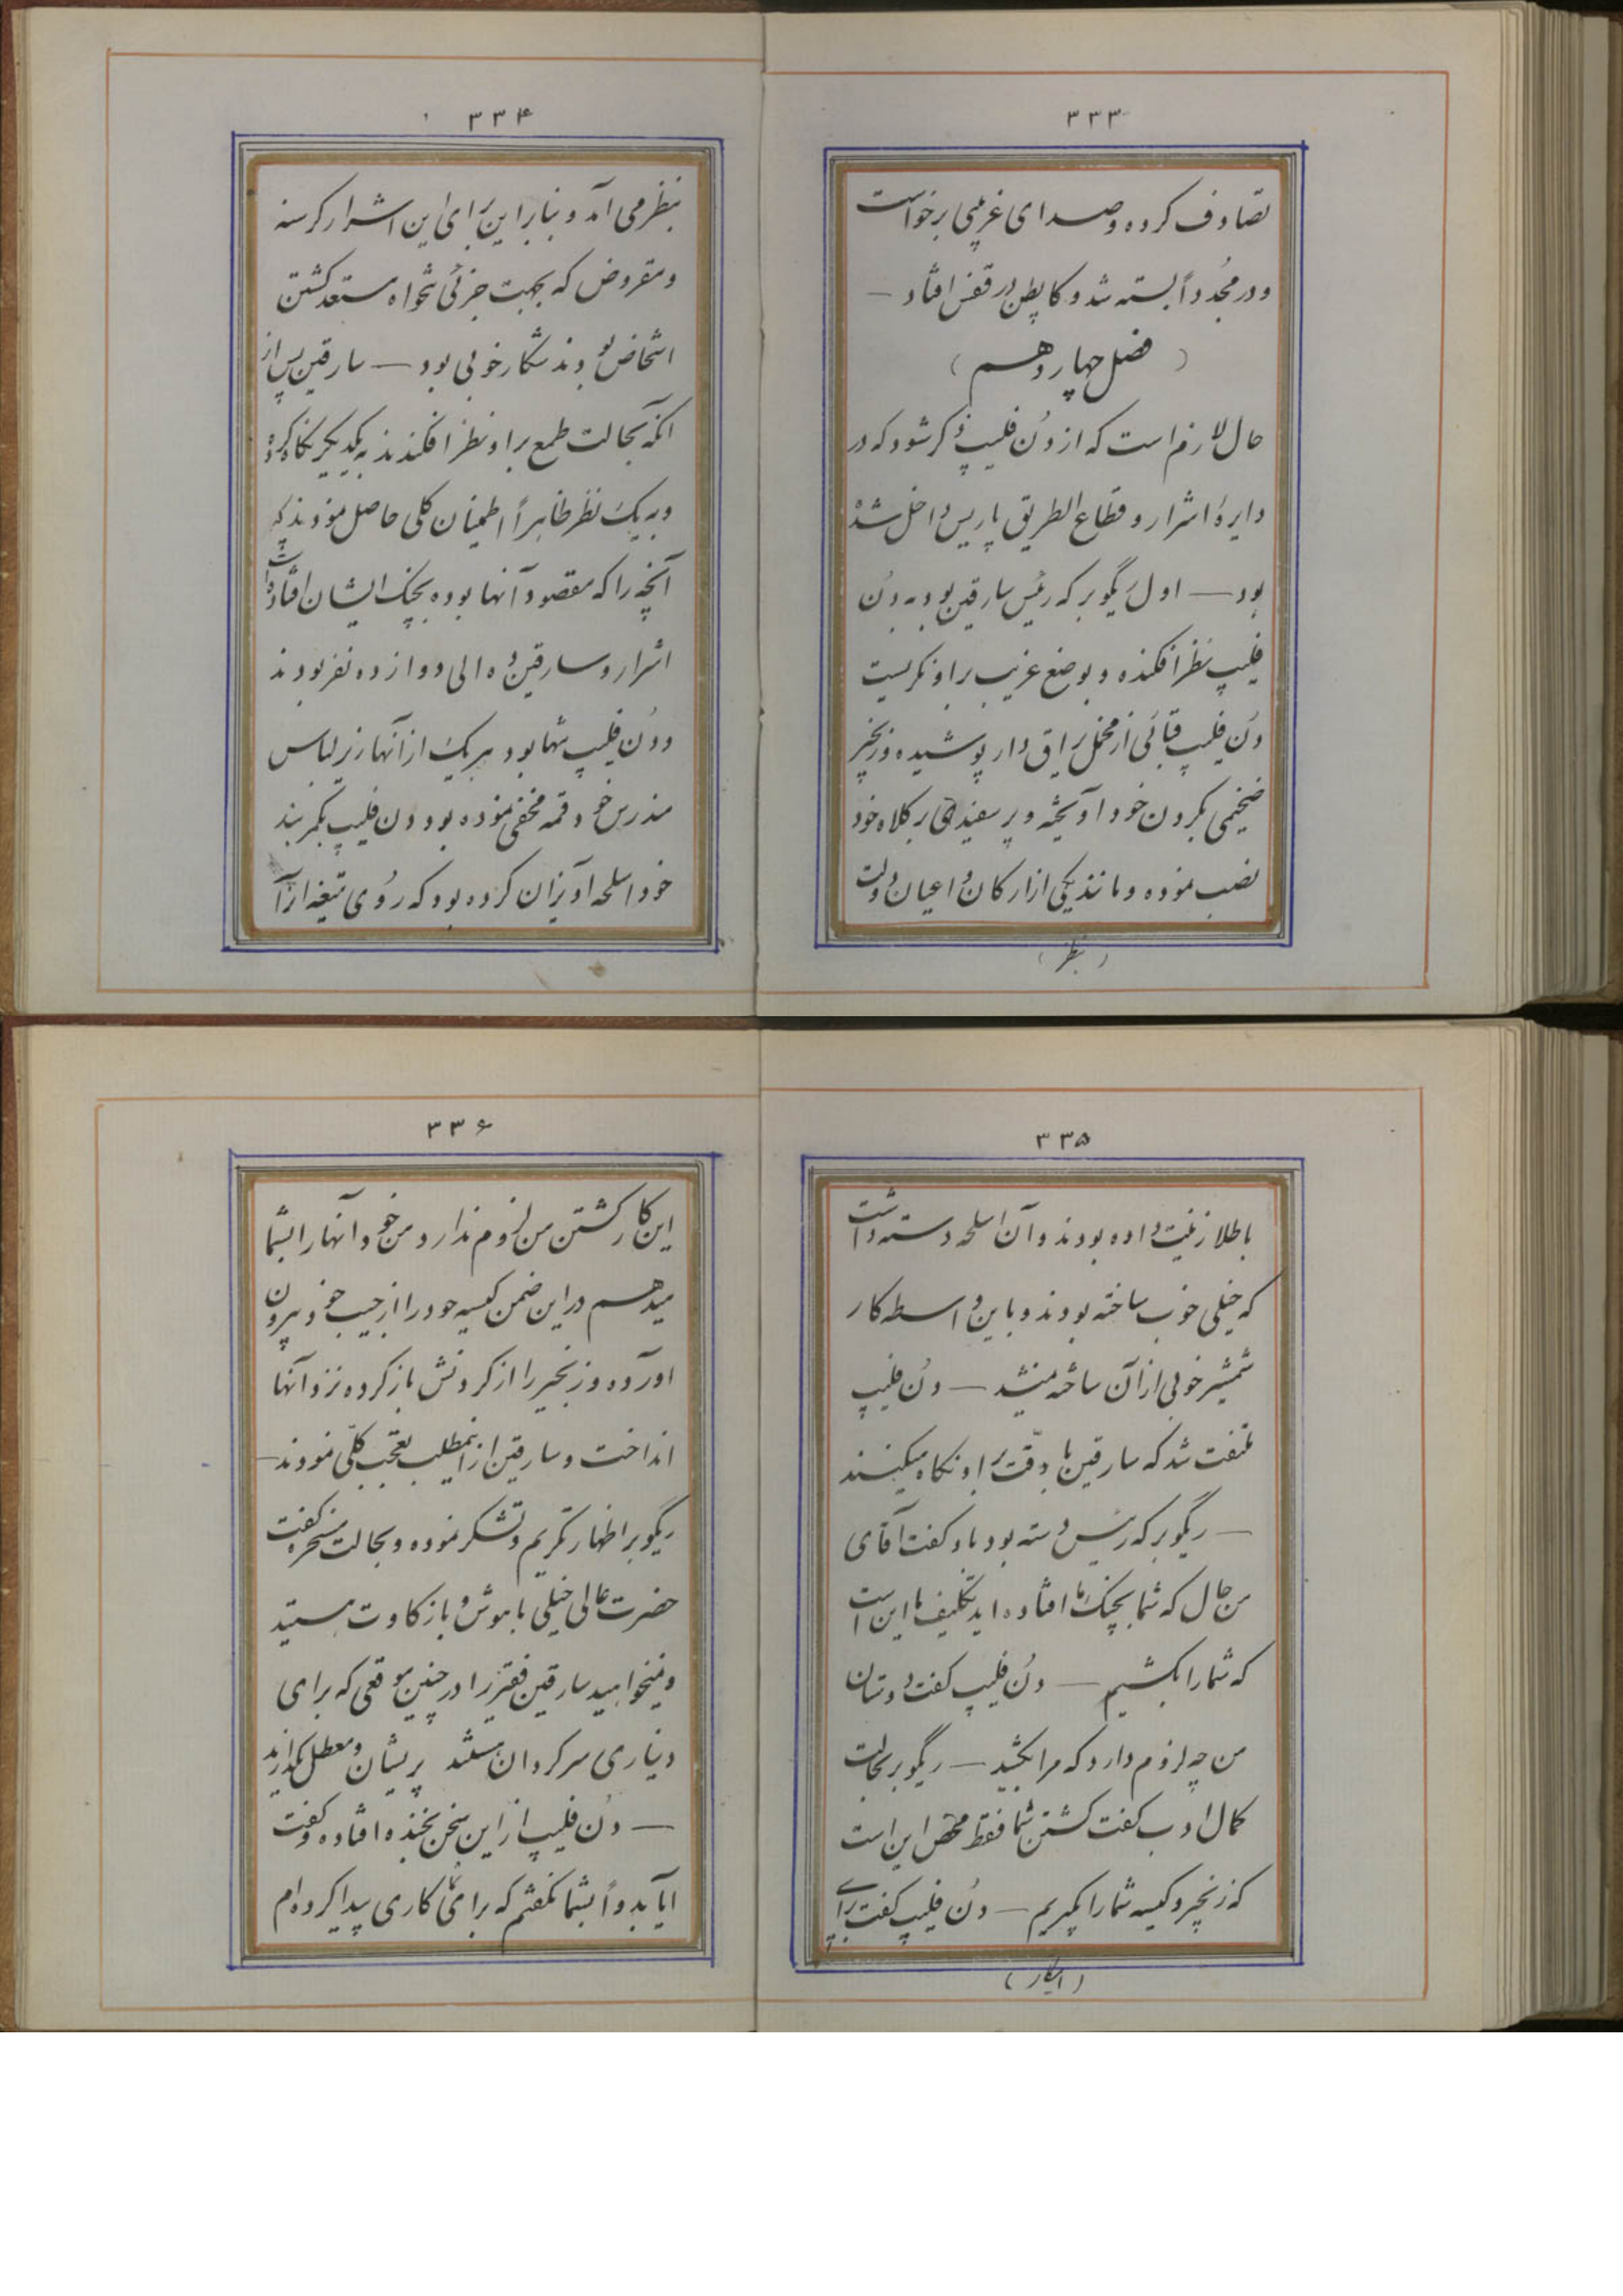 ۳۳۳
تصادف کرده و صدای غریبی برخواست
و در مجُدداً بسته شد و کاپطن در قفس افتاد —
(فصل چهاردهم)
حال لازم است که از دُن فلیپ ذکر شود که در
دایرهٔ اشرار و قطاع الطریق پاریس داخل شده
بود — اول ریگوبر که رئیس سارقین بود به دُن
فلیپ نظر افکنده و بوضع غریب براو نگریست
دُن فلیپ قبائی از مخمل یراق دار پوشیده و زنجیر
ضخیمی بگردن خود آویخته و پر سفیدی بر کلاه خود
نصب نموده و مانند یکی از ارکان و اعیان دولت
(بنظر)
۳۳۴
بنظر می آمد و بنابراین برای این اشرار گرسنه
و مقروض که بجهت جزئی تنخواه مستعد کشتن
اشخاص بودند شکار خوبی بود — سارقین پس از
انکه بحالت طمع براو نظر افکندند به یکدیگر نگاه کرده
و به یک نظر ظاهراً اطمینان کلی حاصل نمودند که
آنچه را که مقصود آنها بوده بچنگ ایشان افتاده است
اشرار و سارقین ده الی دوازده نفر بودند
و دُن فلیپ تنها بود هریک از آنها زیر لباس
مندرس خود قمه مخفی نموده بود دن فلیپ بکمربند
خود اسلحه آویزان کرده بود که رُوی تیغه از آنرا
۳۳۵
با طلا زینت داده بودند و آن اسلحه دسته داشت
که خیلی خوب ساخته بودند و باین واسطه کار
شمشیر خوبی از آن ساخته میشد — دُن فلیپ
ملتفت شد که سارقین با دقّت براو نگاه میکنند
— ریگوبر که رئیس دسته بود باو گفت آقای
من حال که شما بچنگ ما افتاده اید تکلیف ما این است
که شما را بکشیم — دُن فلیپ گفت دوستان
من چه لزوم دارد که مرا بکشید — ریگوبر بحالت
کمال ادب گفت کشتن شما فقط محض این است
که زنجیر و کیسه شما را بگیریم — دُن فلیپ گفت برای
(اینکار)
۳۳۶
این کار کشتن من لزوم ندارد من خود آنها را بشما
میدهم در این ضمن کیسه خود را از جیب خود بیرون
اورده و زنجیر را از گردنش باز کرده نزد آنها
انداخت و سارقین از اینمطلب تعجب کلّی نمودند —
ریگوبر اظهار تکریم و تشکر نموده و بحالت مسخره گفت
حضرت عالی خیلی با هوش و با زکاوت هستید
و نمیخواهید سارقین فقیر را در چنین موقعی که برای
دیناری سرگردان هستند پریشان و معطل بگذارید
— دُن فلیپ از این سخن بخنده افتاده و گفت
ایا بدواً بشما نگفتم که برای شما کاری پیدا کرده ام